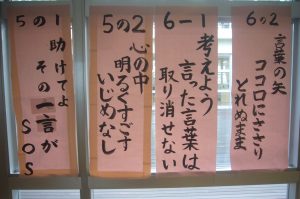 6の2
言葉の矢
ココロにささり
とれぬまま
6-1
考えよう
言った言葉は
取り消せない
5の2
心の中
明るくすごす
いじめなし
5の1
助けてよ
その一言が
SOS